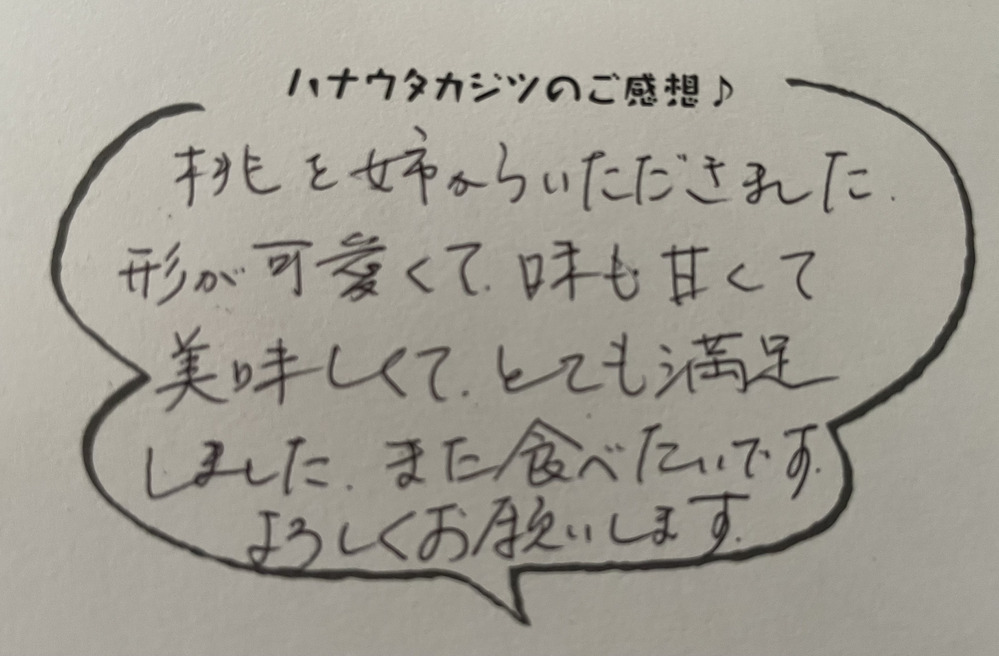 ハナウタカジツのご感想♪
桃を姉からいただきました.
形が可愛くて.味も甘くて
美味しくて.とても満足
しました.また食べたいです.
よろしくお願いします.